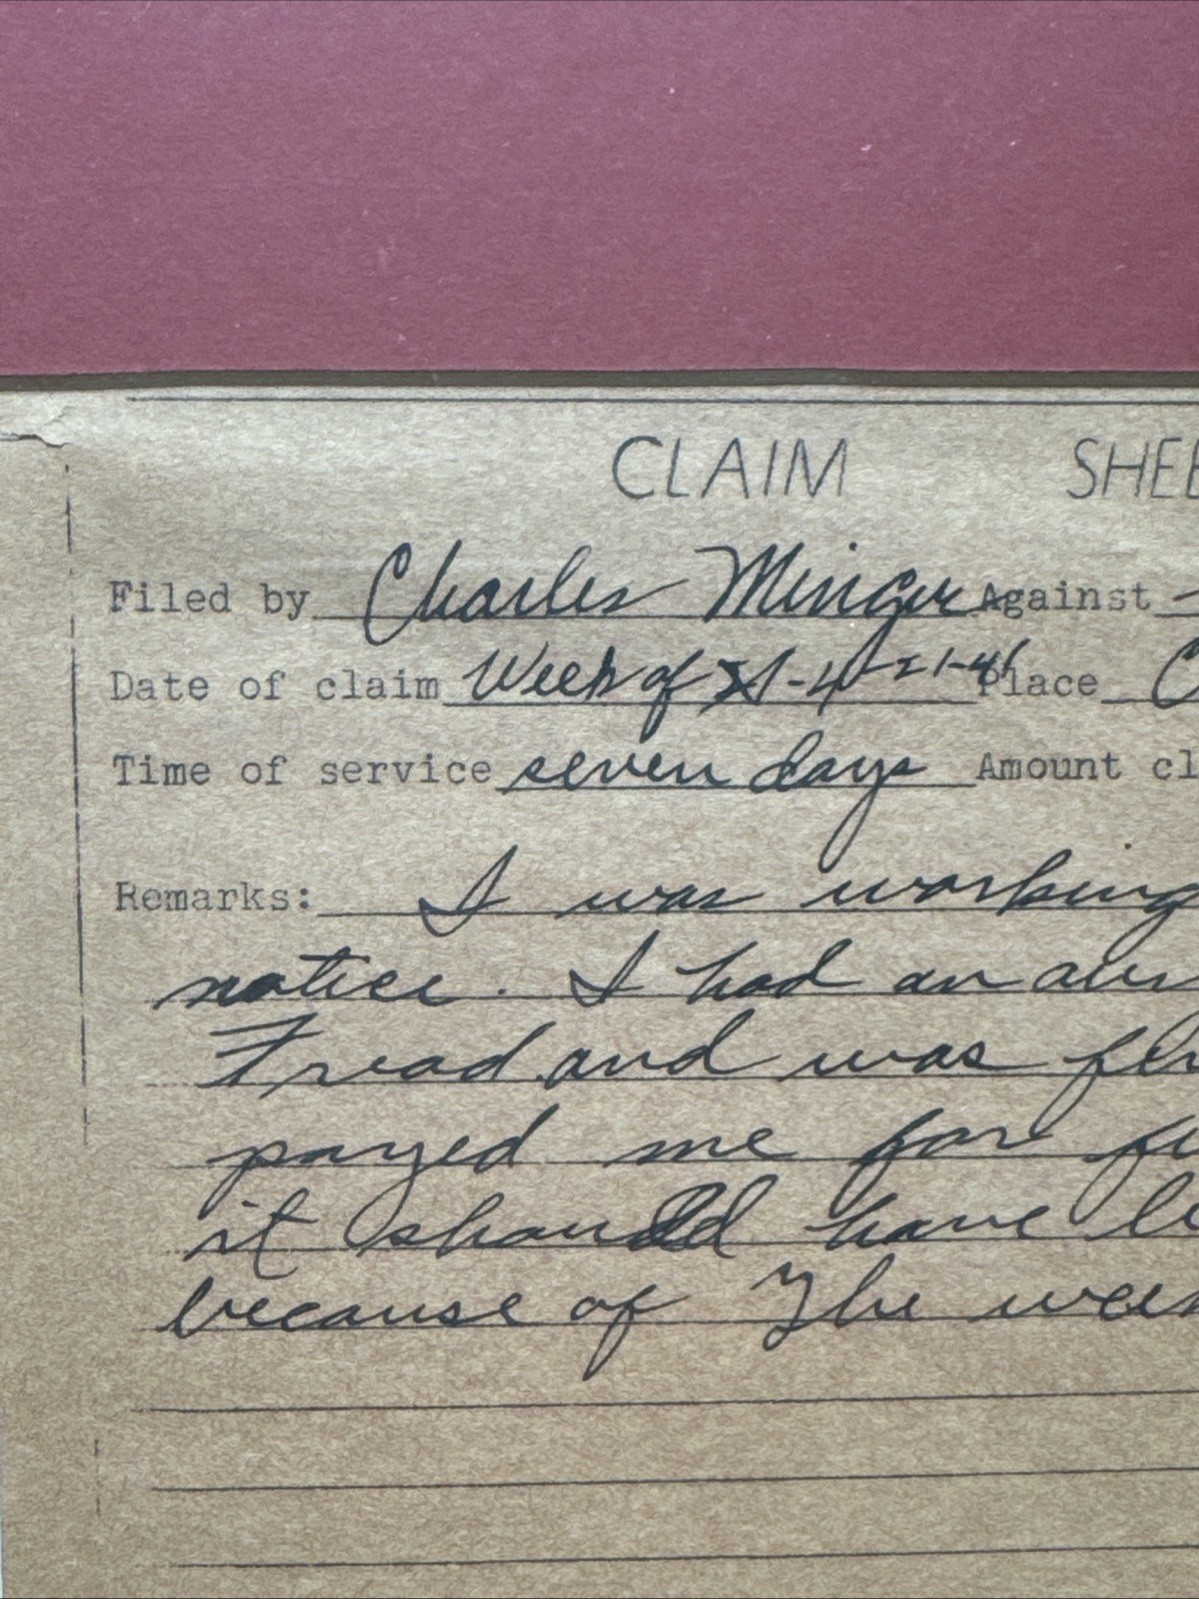 CLAIM SHEE
Filed by Charles Mingus Against
Date of claim Week of 1-4 -21-46 Place C
Time of service seven days Amount cl
Remarks: I was working
notice. I had an
Fread and was
payed me for
it should have
because of The